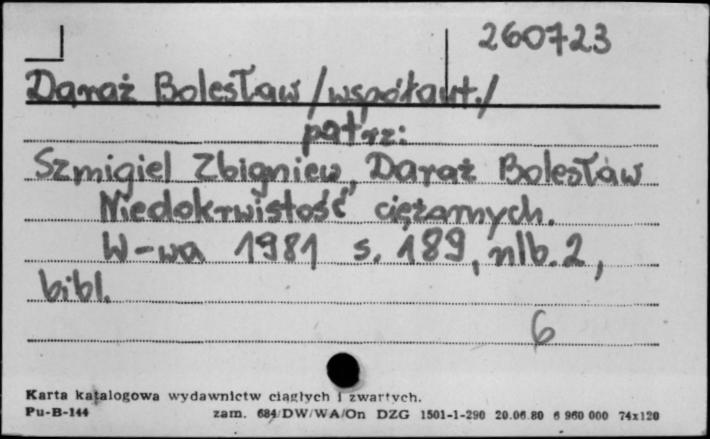 260723
Daraż Bolesław /współaut./
patrz:
Szmigiel Zbigniew, Daraż Bolesław
Niedokrwistość ciężarnych.
W-wa 1981 s. 189, nlb. 2,
bibl.
6
Karta katalogowa wydawnictw ciągłych i zwartych.
Pu-B-144 zam. 684/DW/WA/On DZG 1501-1-290 20.06.80 6 960 000 74x120